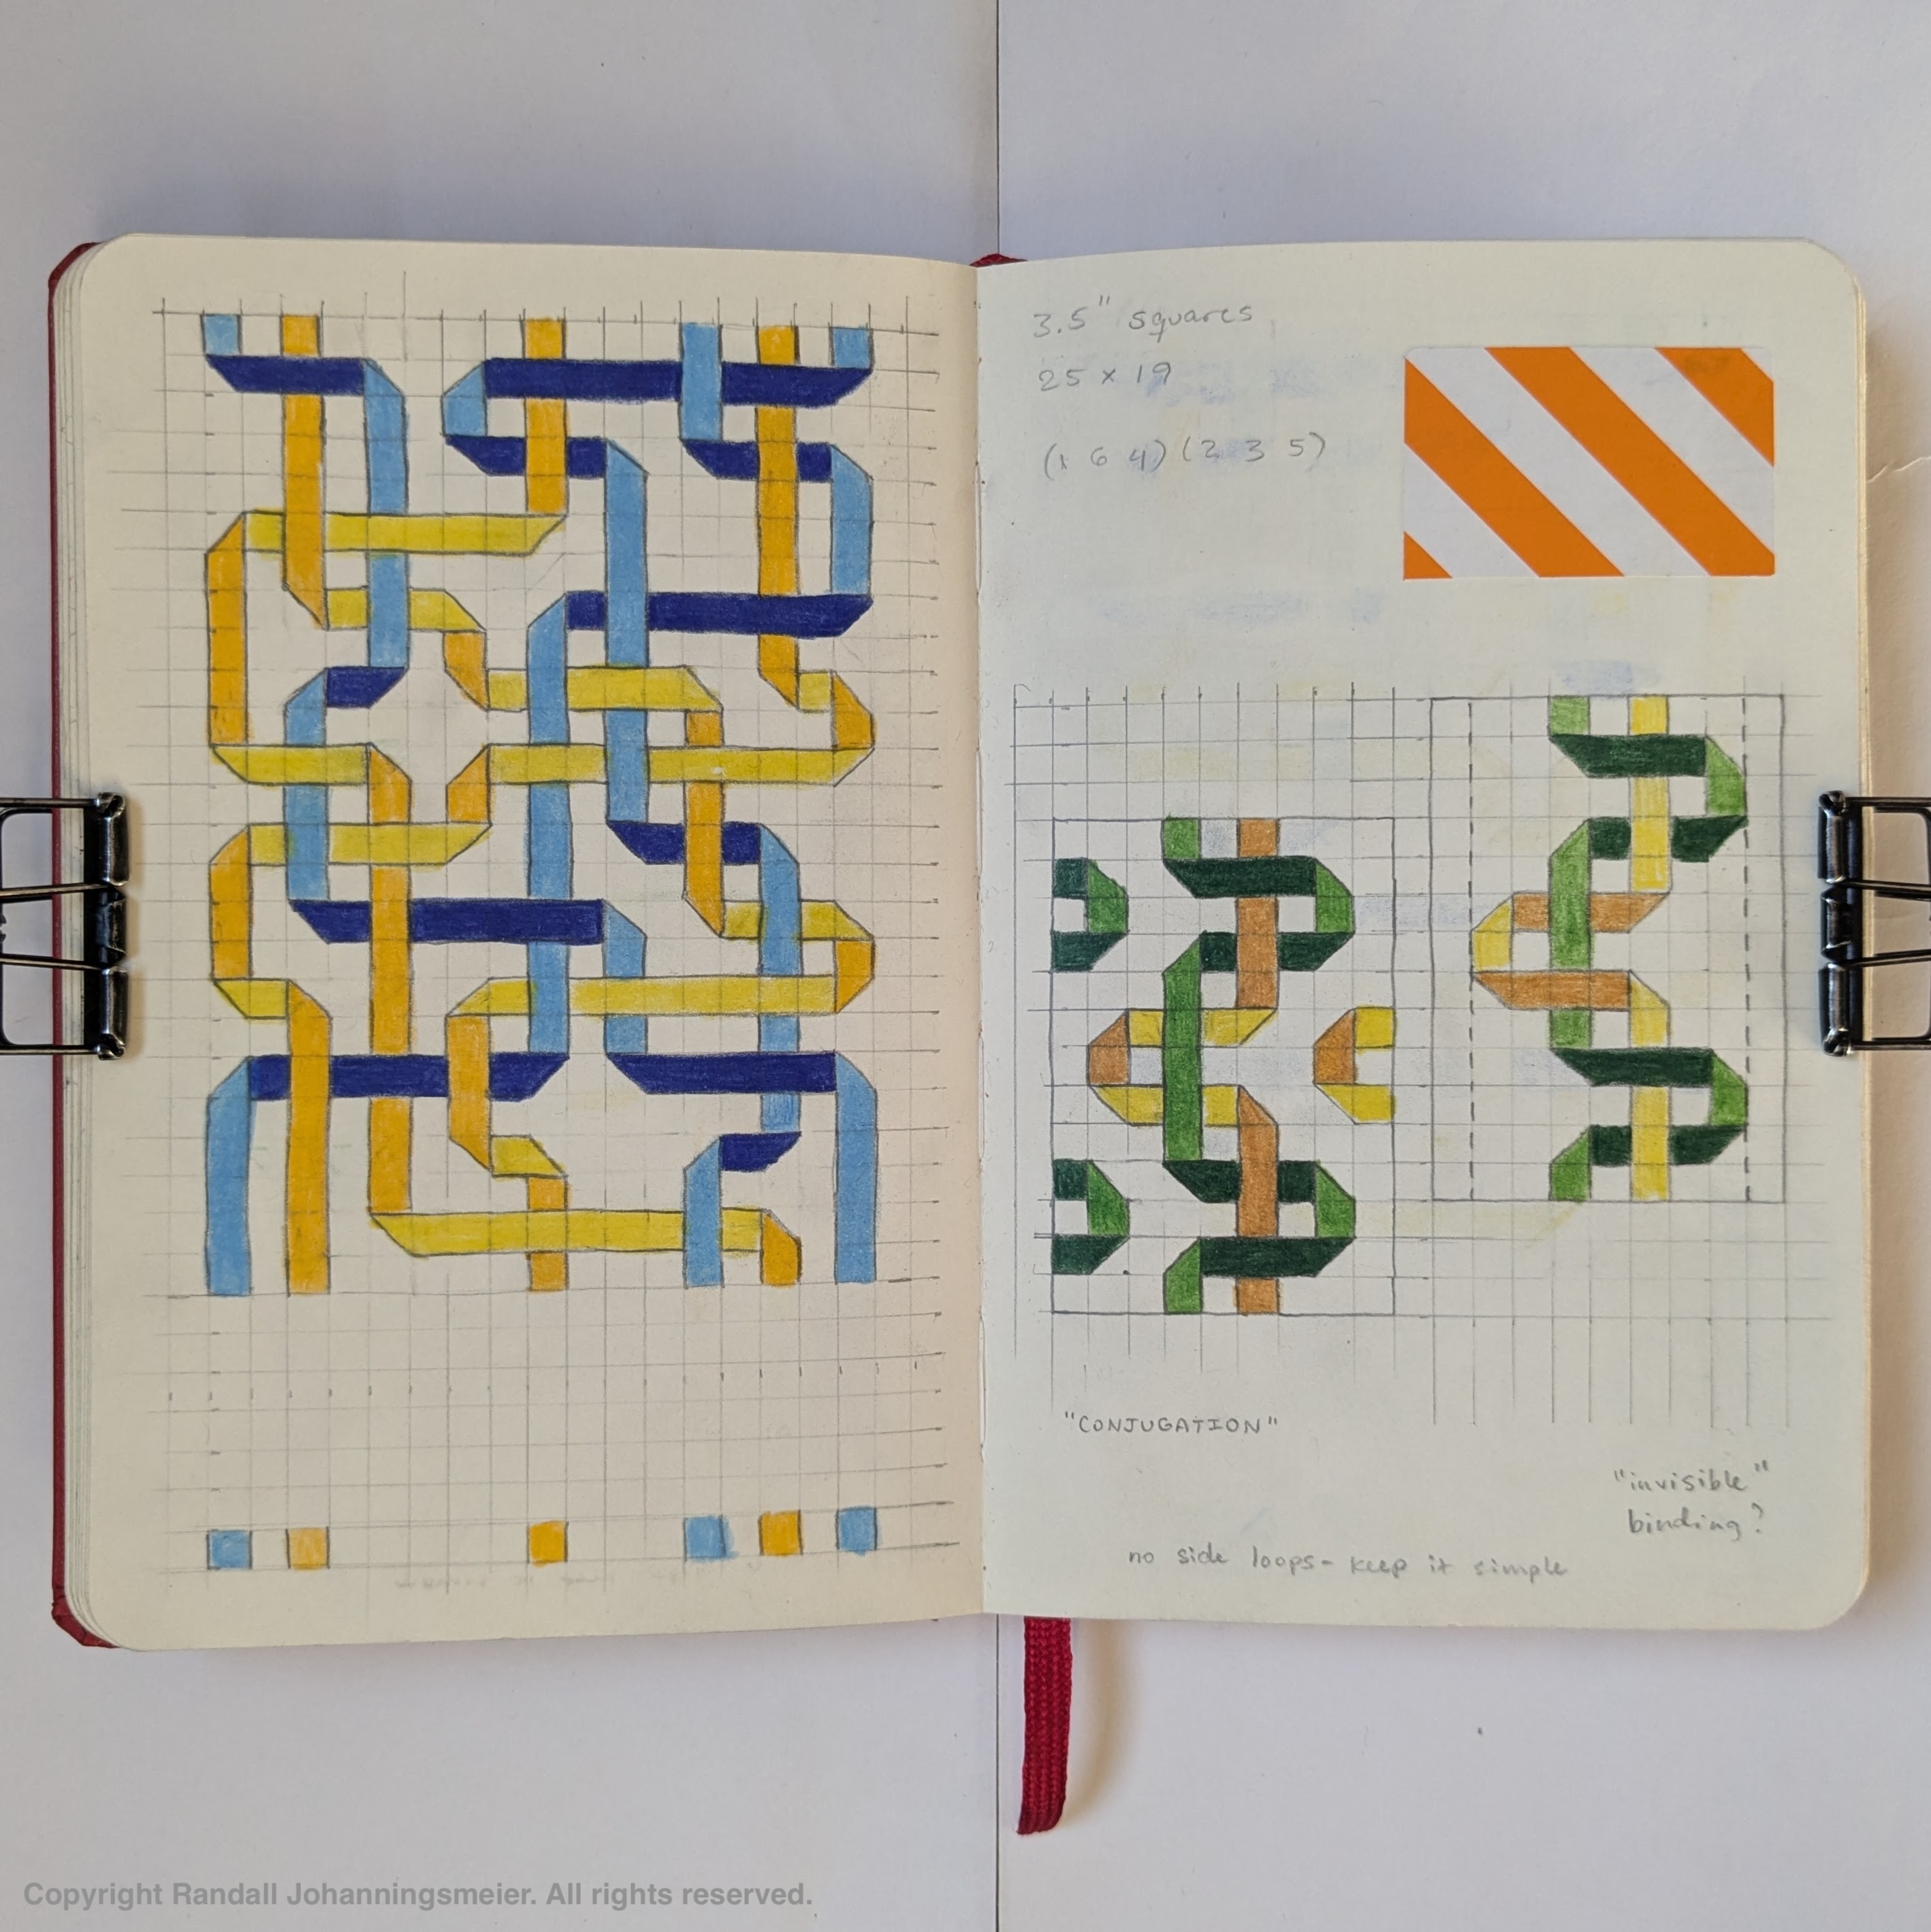 3.5" squares
25 x 19
(1 6 4)(2 3 5)
"CONJUGATION"
"invisible"
binding?
no side loops - keep it simple
Copyright Randall Johanningsmeier. All rights reserved.